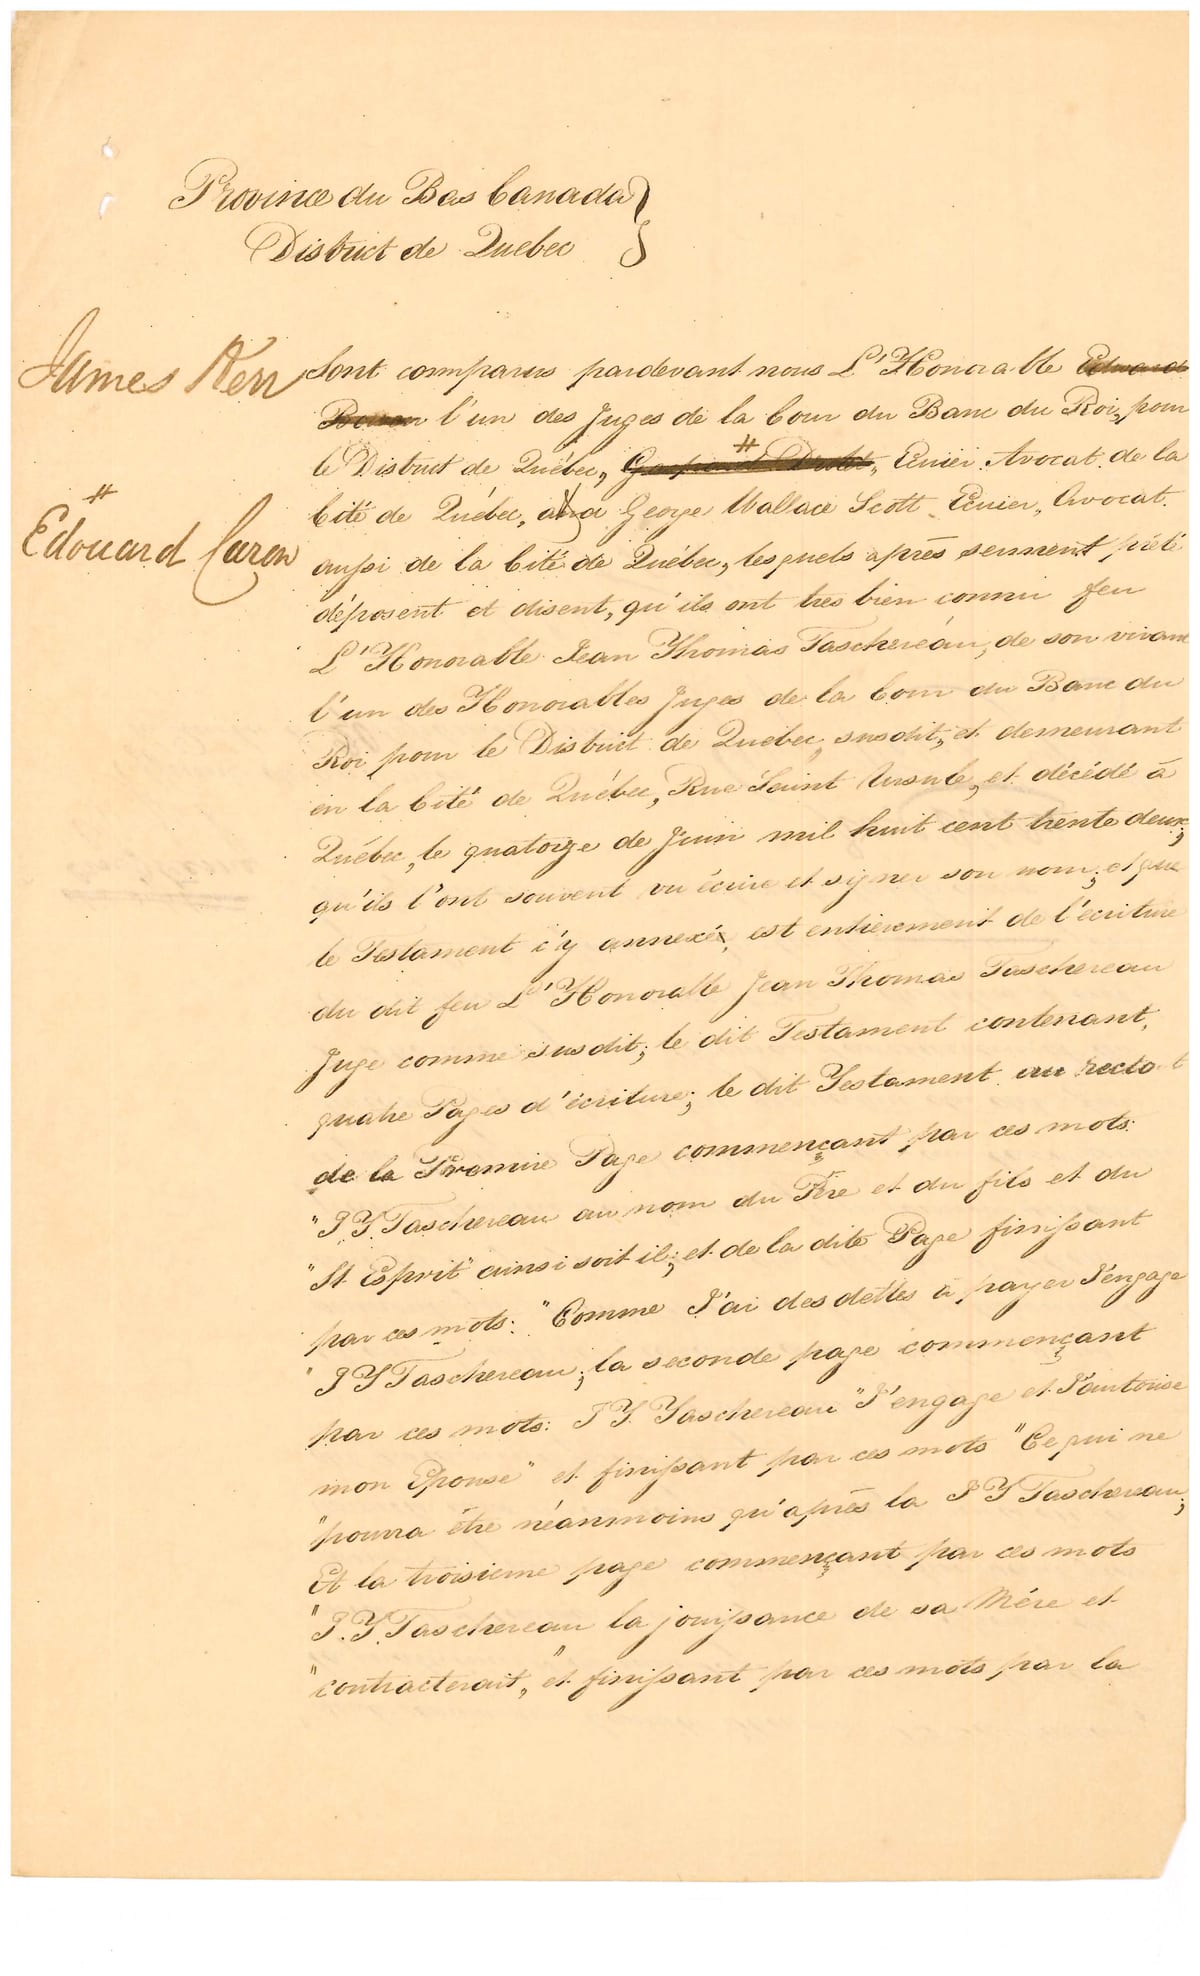 Province du Bas Canada }
District de Quebec
James Kerr
Sont comparus pardevant nous L'Honorable Edward
Bowen l'un des Juges de la Cour du Banc du Roi, pour
#
le District de Québec, Ecuier Avocat de la
#
Edouard Caron
Cité de Québec, and George Wallace Scott Ecuier, Avocat
aussi de la Cité de Québec, lesquels après serment prété
déposent et disent, qu'ils ont très bien connu feu
L'Honorable Jean Thomas Taschereau, de son vivant
l'un des Honorables Juges de la Cour du Banc du
Roi pour le District de Québec, susdit, et demeurant
en la Cité de Québec, Rue Saint Ursule, et décédé à
Québec, le quatorze de Juin mil huit cent trente deux;
qu'ils l'ont souvent vu écrire et signer son nom; et que
le Testament c'y annexé, est entierement de l'écriture
du dit feu L'Honorable Jean Thomas Taschereau
Juge comme susdit; le dit Testament contenant,
quatre Pages d'écriture; le dit Testament au recto
de la Premire Page commençant par ces mots:
"J. T. Taschereau au nom du Père et du fils et du
"St Esprit" ainsi soit il; et de la dite Page finissant
par ces mots: "Comme J'ai des dettes à payer J'engage
"J T Taschereau; la seconde page commençant
par ces mots: J T. Taschereau "J'engage et J'autorise
mon Epouse" et finissant par ces mots "Ce qui ne
"pourra être néanmoins qu'après la J T Taschereau;
Et la troisieme page commençant par ces mots
"J. T. Taschereau la jouissance de sa Mére et
"contracterait," et finissant par ces mots par la